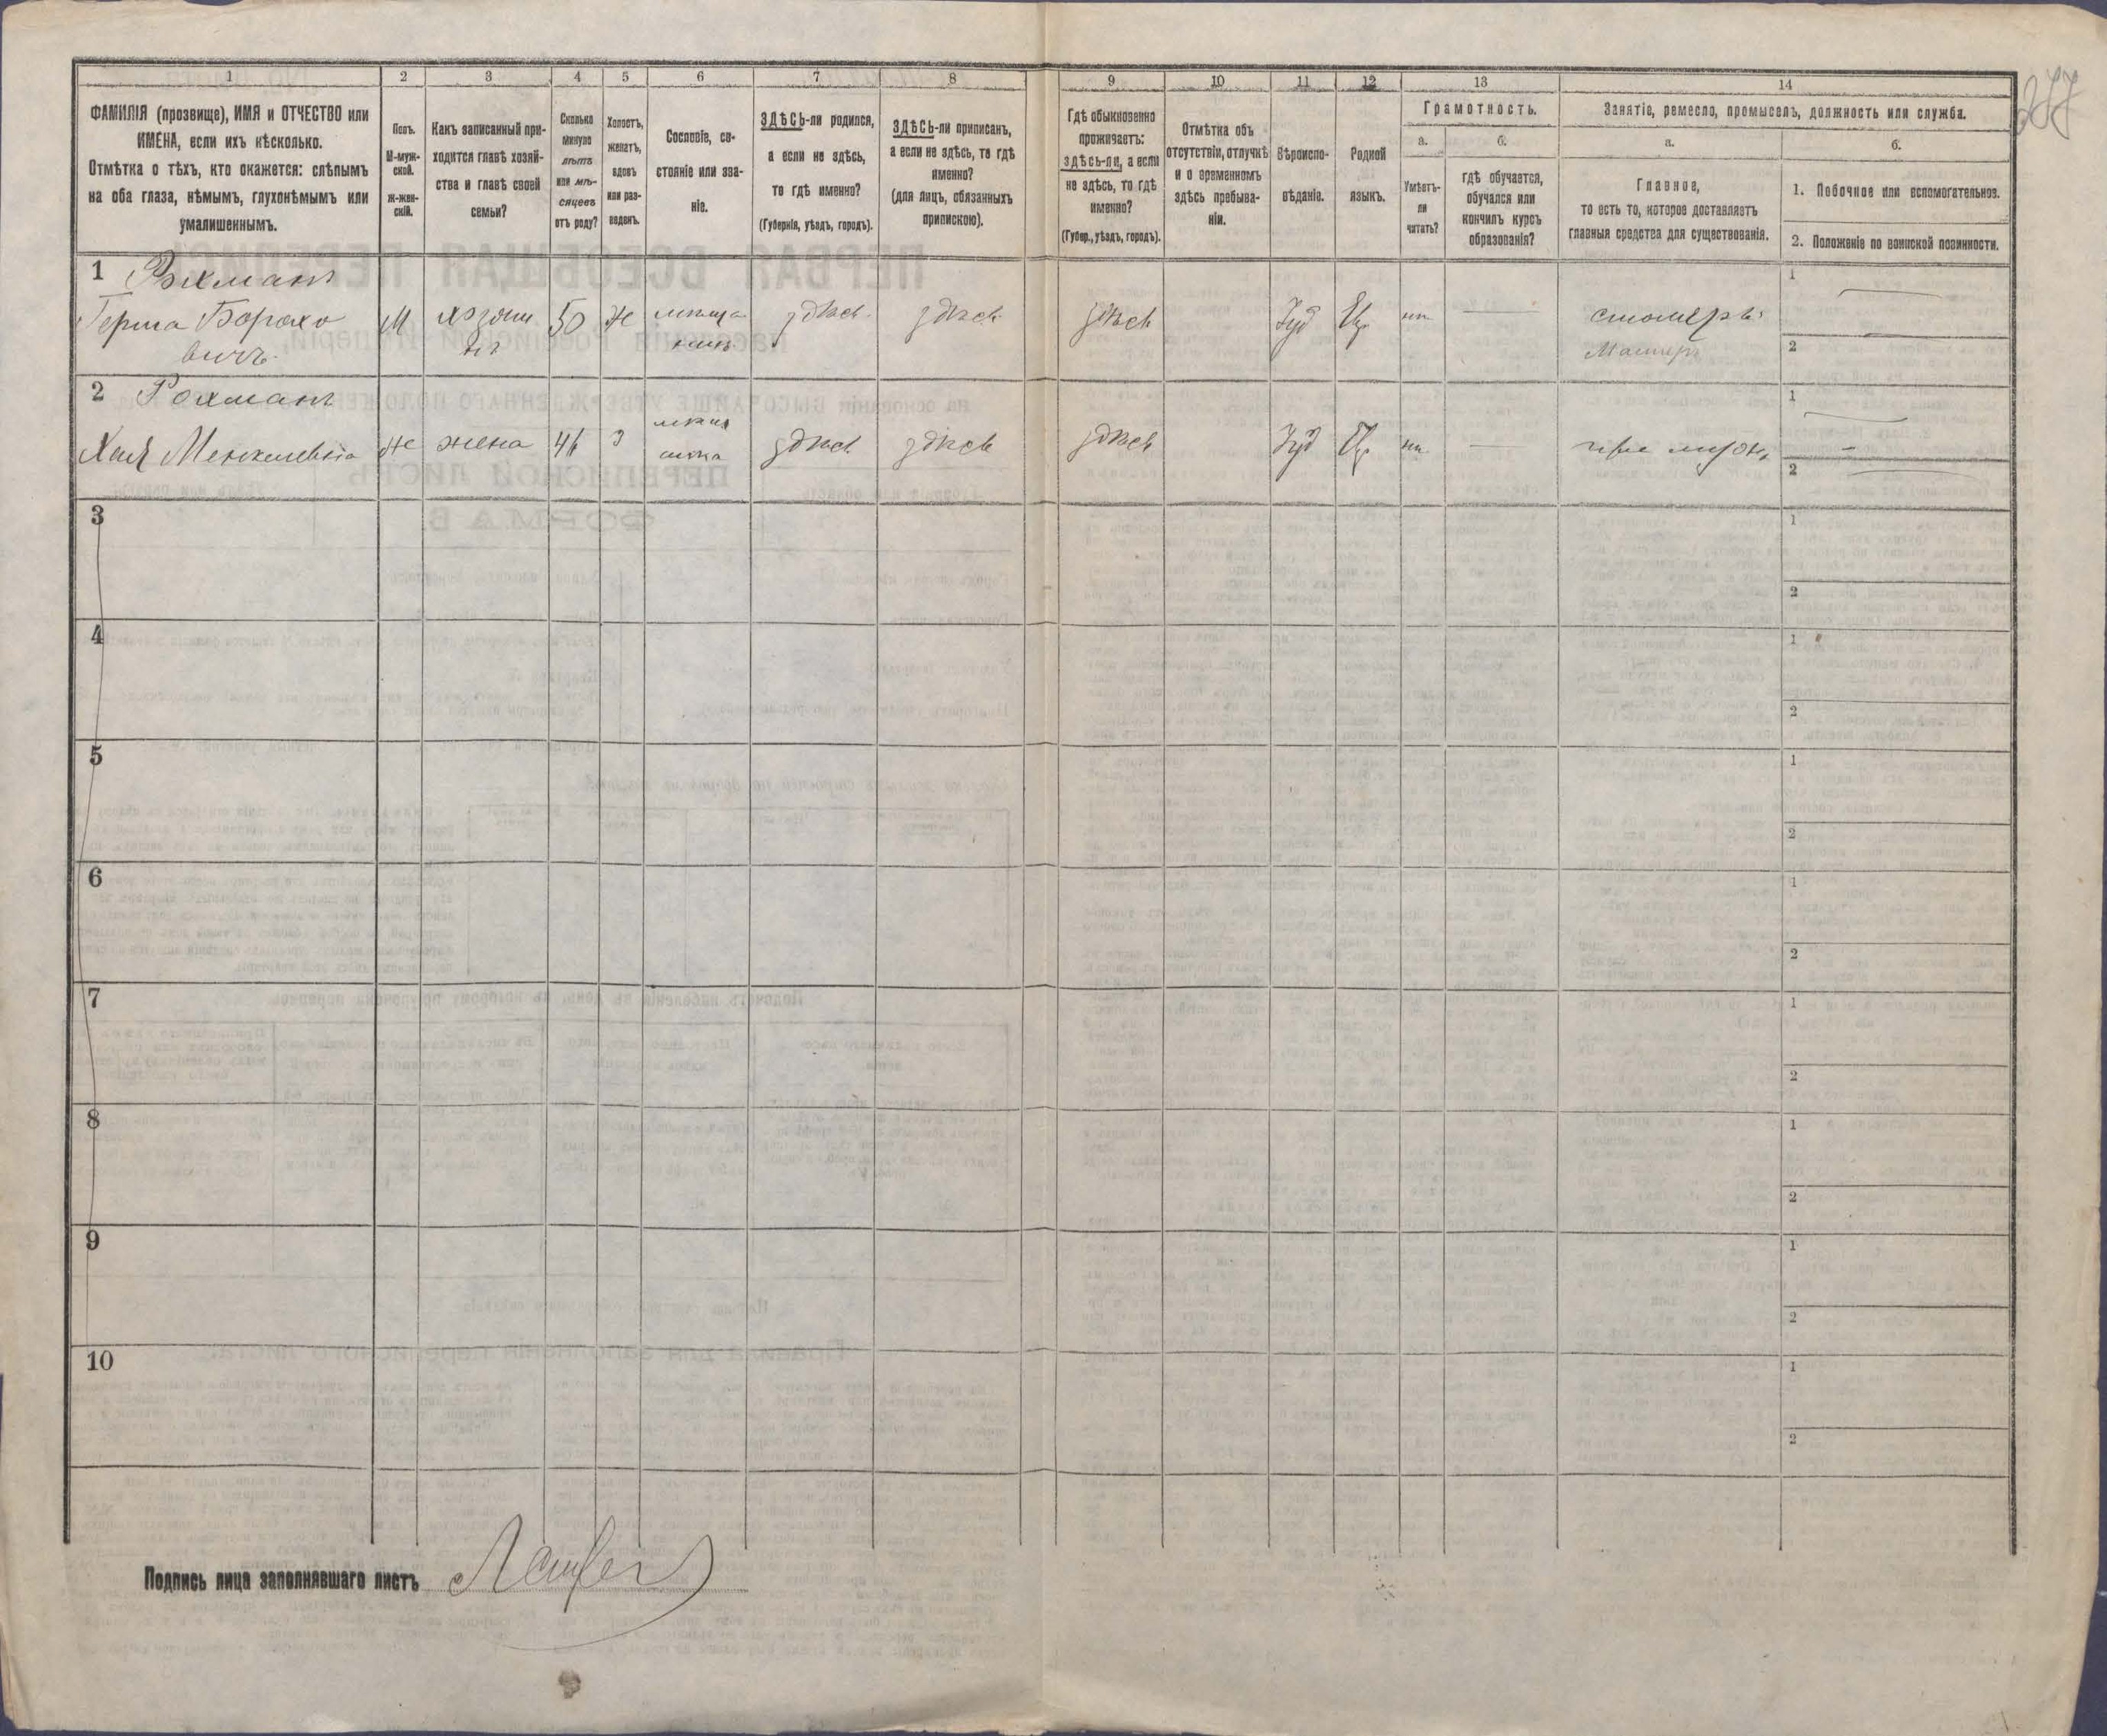 277
1
2
3
4
5
6
7
8
9
10
11
12
13
14
ФАМИЛІЯ (прозвище), ИМЯ и ОТЧЕСТВО или
ИМЕНА, если ихъ нѣсколько.
Отмѣтка о тѣхъ, кто окажется: слѣпымъ
на оба глаза, нѣмымъ, глухонѣмымъ или
умалишеннымъ.
Полъ.
М-муж-
ской.
Ж-жен-
скій.
Какъ записанный при-
ходится главѣ хозяй-
ства и главѣ своей
семьи?
Сколько
минуло
лѣтъ
или мѣ-
сяцевъ
отъ роду?
Холостъ,
женатъ,
вдовъ
или раз-
веденъ.
Сословіе, со-
стояніе или зва-
ніе.
ЗДѢСЬ-ли родился,
а если не здѣсь,
то гдѣ именно?
(Губернія, уѣздъ, городъ).
ЗДѢСЬ-ли приписанъ,
а если не здѣсь, то гдѣ
именно?
(для лицъ, обязанныхъ
припискою).
Гдѣ обыкновенно
проживаетъ:
здѣсь-ли, а если
не здѣсь, то гдѣ
именно?
(Губер., уѣздъ, городъ).
Отмѣтка объ
отсутствіи, отлучкѣ
и о временномъ
здѣсь пребыва-
ніи.
Вѣроиспо-
вѣданіе.
Родной
языкъ.
Грамотность.
а.
Умѣетъ-
ли
читать?
б.
гдѣ обучается,
обучался или
кончилъ курсъ
образованія?
Занятіе, ремесло, промыселъ, должность или служба.
а.
Главное,
то есть то, которое доставляетъ
главныя средства для существованія.
б.
1. Побочное или вспомогательное.
2. Положеніе по воинской повинности.
1 Рохманъ
Герша Борохо
вичъ
М
хозяи
нъ
50
Ж
мѣща
нинъ
здѣсь
здѣсь
здѣсь
Іуд
Евр
1
2
2 Рохманъ
Хая
Ж
жена
46
З
здѣсь
здѣсь
здѣсь
Іуд
Евр
1
2
3
1
2
4
1
2
5
1
2
6
1
2
7
1
2
8
1
2
9
1
2
10
1
2
Подпись лица заполнявшаго листъ